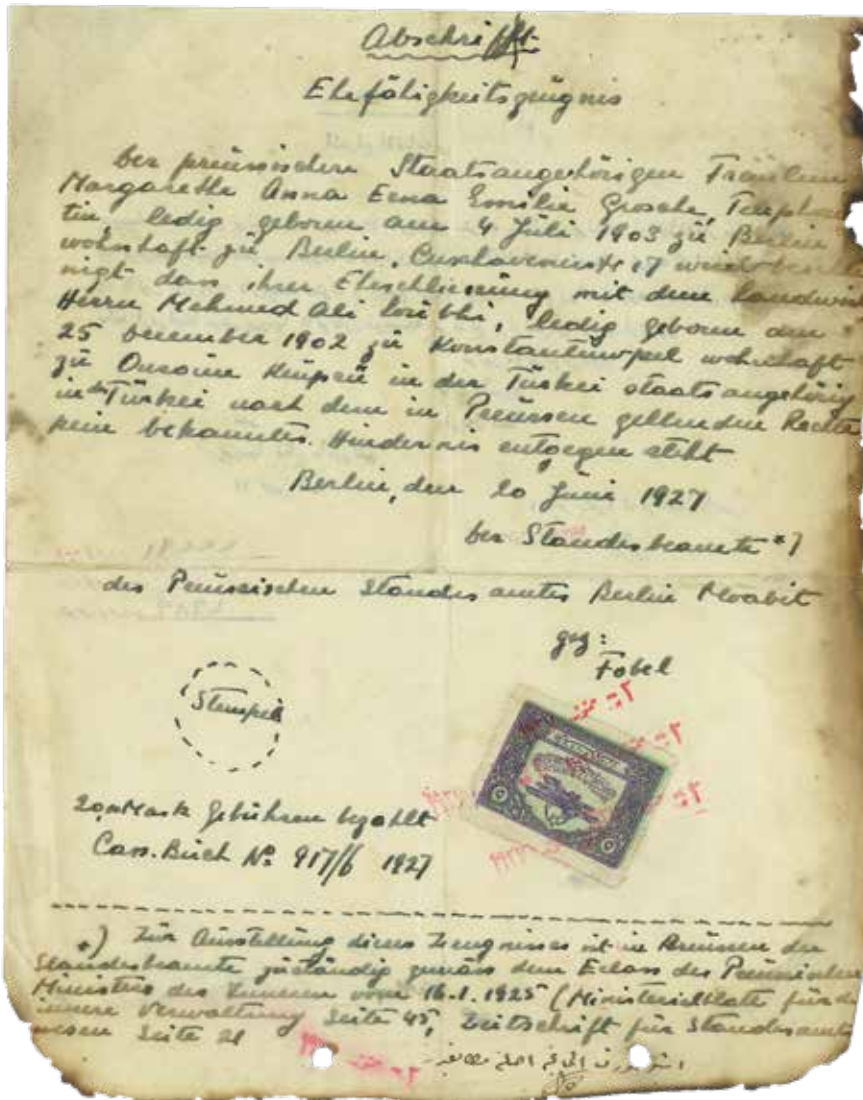 Abschrift
Ehefähigkeitszeugnis
Der preussischen Staatsangehörigen Fräulein
Margarethe Anna Erna Emilie Grosche,
tin, ledig geboren am 4 Juli 1903 zu Berlin
wohnhaft zu Berlin, 17 wird
nigt dass ihrer Eheschliessung mit dem Landwirt
Herrn Mehmed Ali, ledig geboren am
25 Dezember 1902 zu Konstantinopel wohnhaft
zu in der Türkei staatsangehörig
in Türkei nach dem in Preussen geltenden Rechte
kein bekanntes Hindernis entgegen steht
Berlin, den 20 Juni 1927
Der Standesbeamte *)
des Preussischen Standesamtes Berlin Moabit
gez:
Fobel
Stempel
Mark Gebühren bezahlt
Buch No 917/6 1927
*) Zur Ausstellung dieses Zeugnisses ist in Preussen der
Standesbeamte zuständig gemäss dem Erlass des Preussischen
Ministers des Inneren vom 16.1.1925 (Ministerialblatt für die
innere Verwaltung Seite 45, Zeitschrift für Standesamts
wesen Seite 21